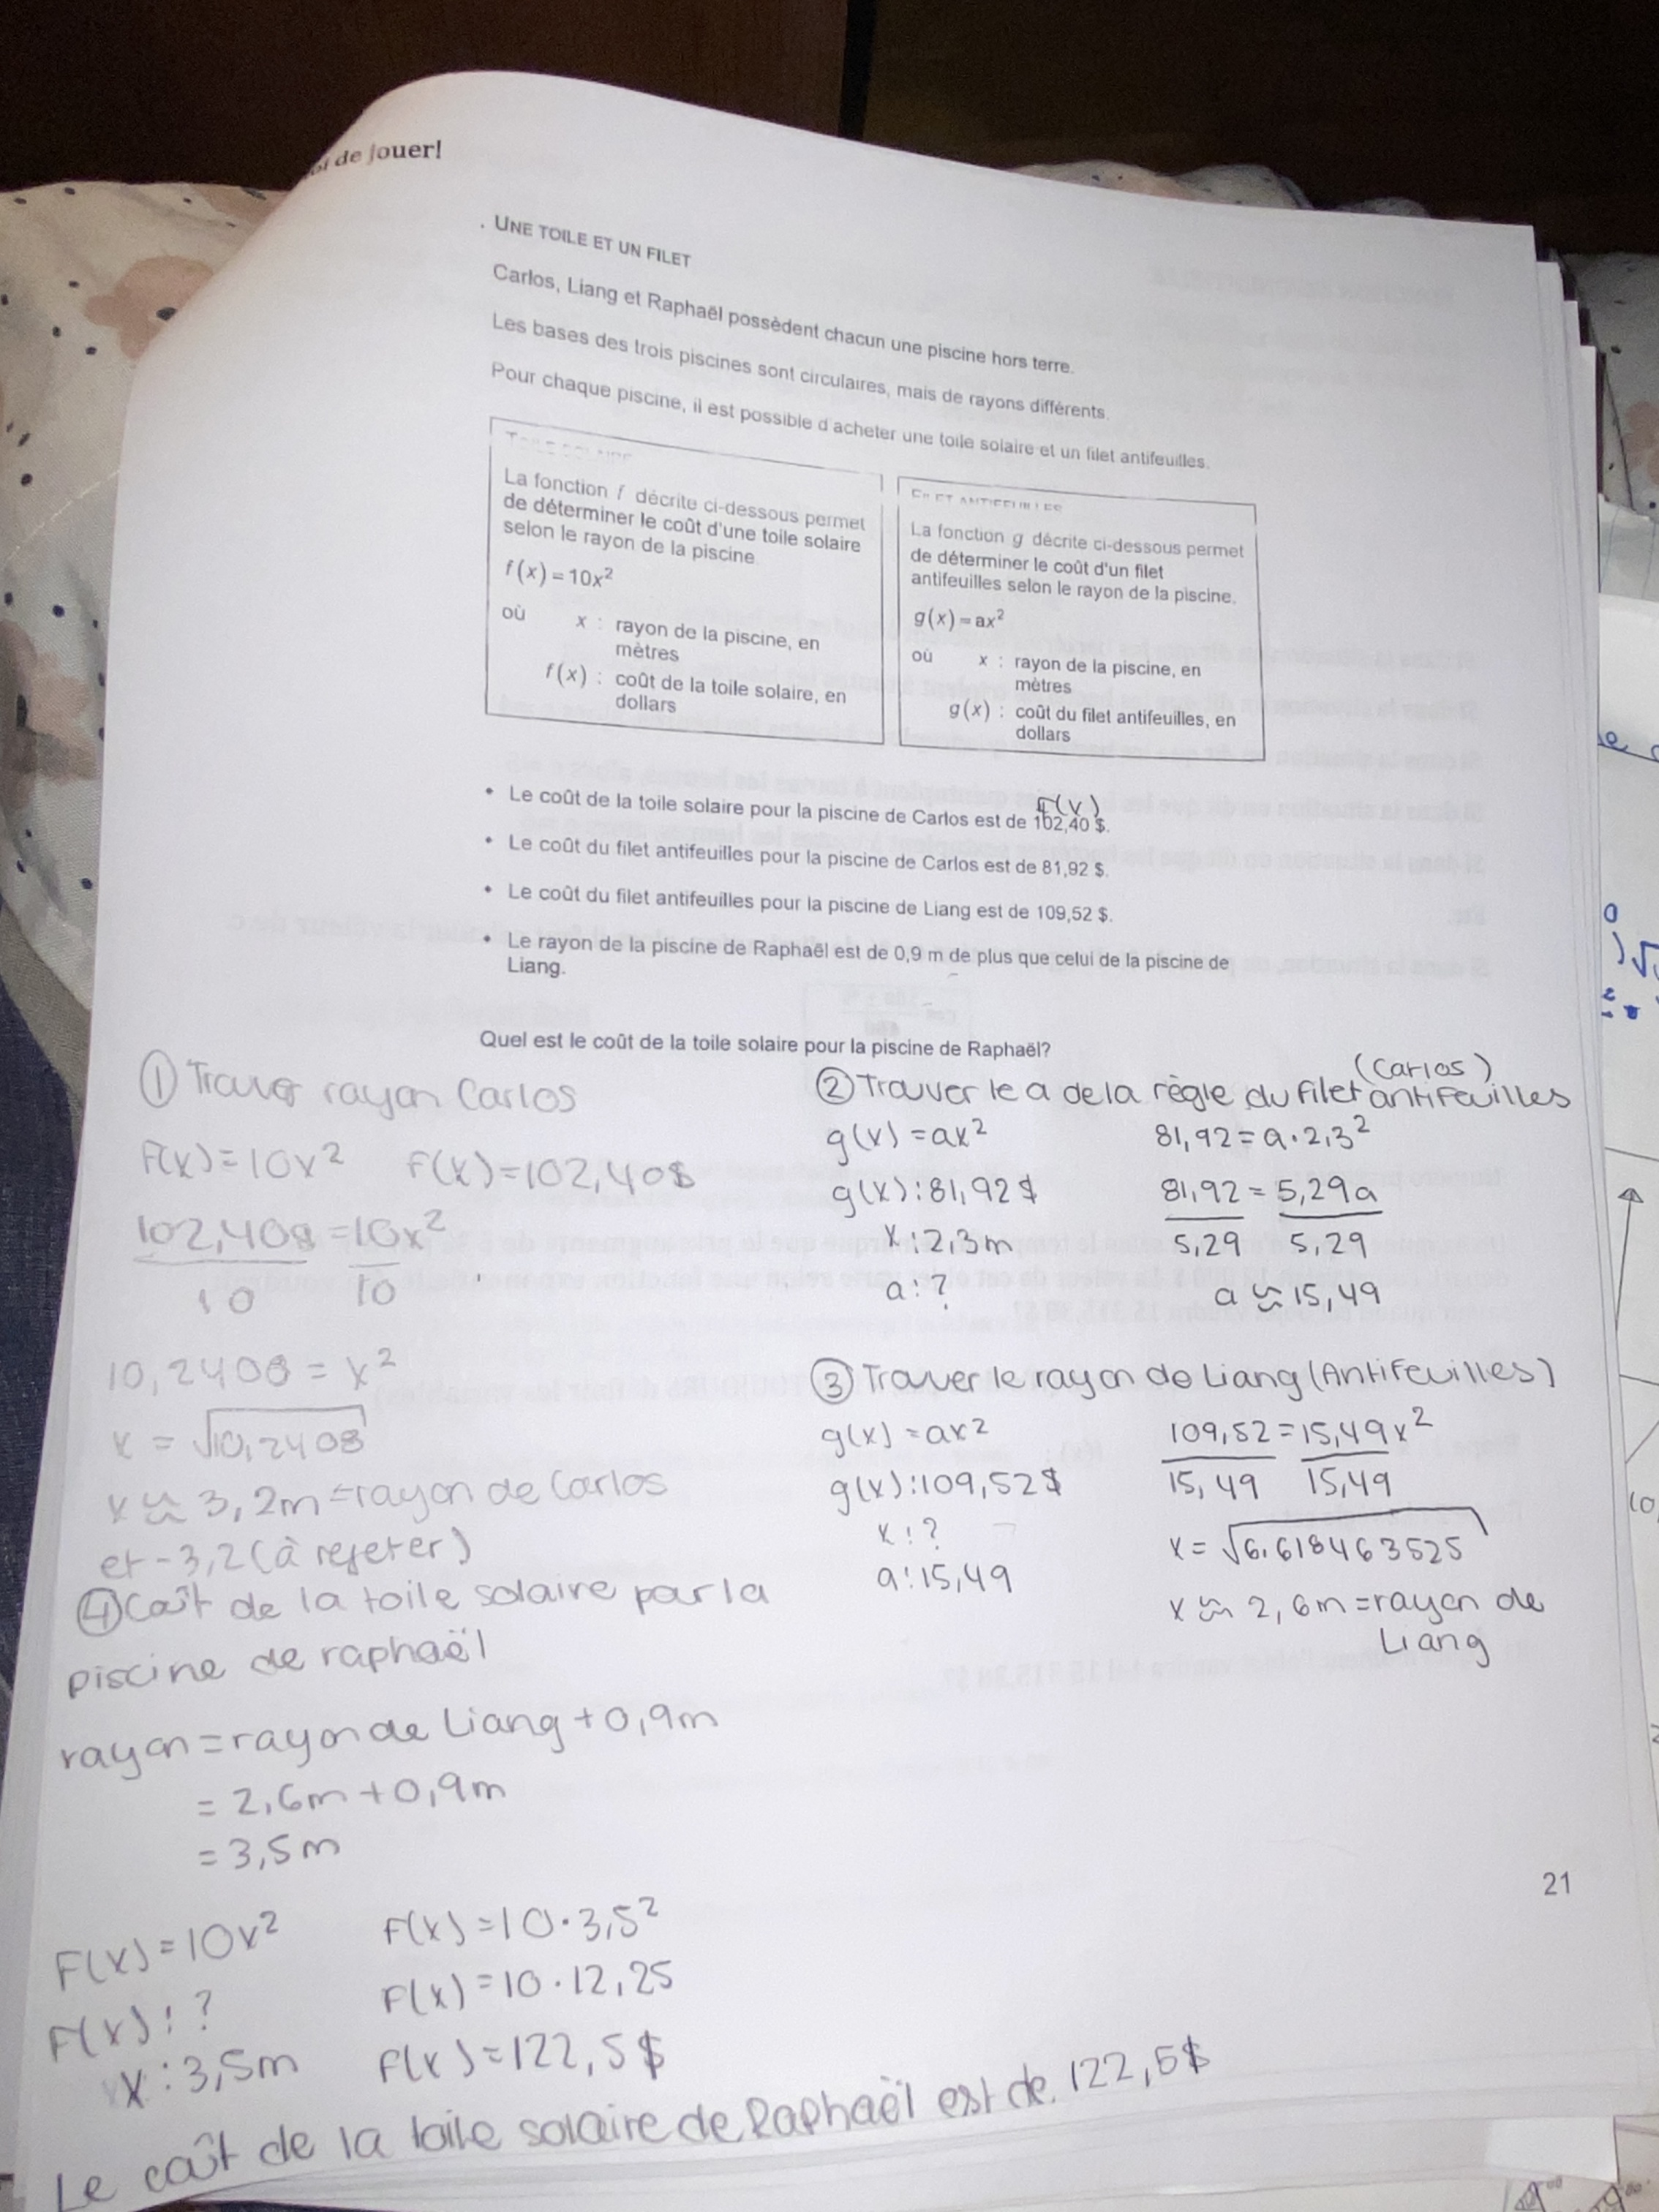 de jouer!
. UNE TOILE ET UN FILET
Carlos, Liang et Raphaël possèdent chacun une piscine hors terre.
Les bases des trois piscines sont circulaires, mais de rayons différents.
Pour chaque piscine, il est possible d'acheter une toile solaire et un filet antifeuilles.
TOILE SOLAIRE
La fonction f décrite ci-dessous permet
de déterminer le coût d'une toile solaire
selon le rayon de la piscine
f(x) = 10x²
où x : rayon de la piscine, en
mètres
f(x) : coût de la toile solaire, en
dollars
FILET ANTIFEUILLES
La fonction g décrite ci-dessous permet
de déterminer le coût d'un filet
antifeuilles selon le rayon de la piscine.
g(x) = ax²
où x : rayon de la piscine, en
mètres
g(x) : coût du filet antifeuilles, en
dollars
F(x)
• Le coût de la toile solaire pour la piscine de Carlos est de 102,40 $.
• Le coût du filet antifeuilles pour la piscine de Carlos est de 81,92 $.
• Le coût du filet antifeuilles pour la piscine de Liang est de 109,52 $.
• Le rayon de la piscine de Raphaël est de 0,9 m de plus que celui de la piscine de
Liang.
Quel est le coût de la toile solaire pour la piscine de Raphaël?
① Trouver rayon Carlos
F(x)=10x² F(x)=102,40$
102,40$ = 10x²
10 10
10,240$ = x²
x = √10,240$
x ≈ 3,2m = rayon de Carlos
et -3,2 (à rejeter)
② Trouver le a de la règle du filet antifeuilles (Carlos)
g(x) = ax² 81,92 = a·2,3²
g(x) : 81,92 $ 81,92 = 5,29a
x : 2,3m 5,29 5,29
a : ? a ≈ 15,49
③ Trouver le rayon de Liang (Antifeuilles)
g(x) = ax² 109,52 = 15,49x²
g(x) : 109,52$ 15,49 15,49
x : ? x = √6.618463525
a : 15,49
x ≈ 2,6m = rayon de
Liang
④ Coût de la toile solaire par la
piscine de raphaël
rayon = rayon de Liang + 0,9m
= 2,6m + 0,9m
= 3,5m
F(x) = 10x² F(x) = 10·3,5²
F(x) : ? F(x) = 10·12,25
x : 3,5m F(x) = 122,5$
Le coût de la toile solaire de Raphaël est de 122,5$
21